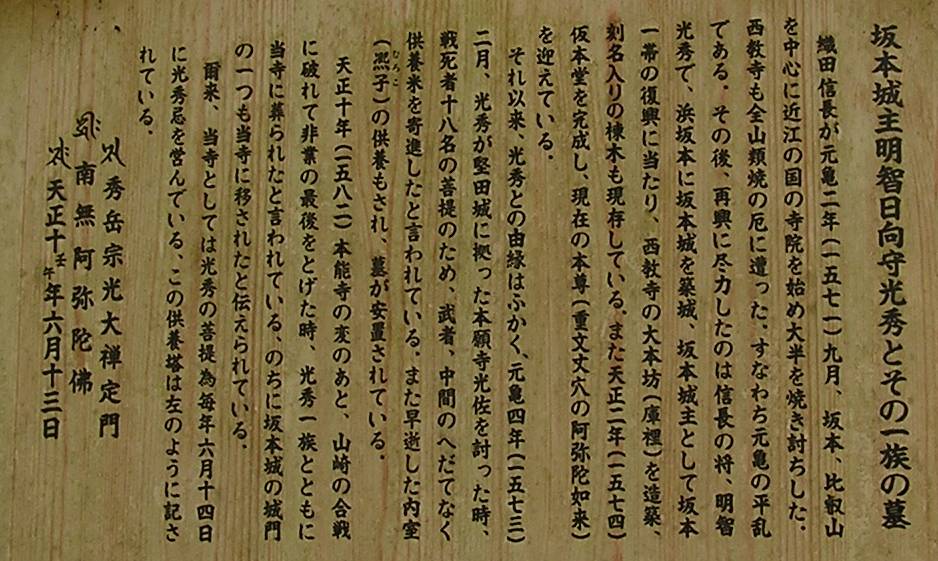 坂本城主明智日向守光秀とその一族の墓
織田信長が元亀二年(一五七一)九月、坂本、比叡山
を中心に近江の国の寺院を始め大半を焼き討ちした.
西教寺も全山類焼の厄に遭った.すなわち元亀の平乱
である.その後、再興に尽力したのは信長の将、明智
光秀で、浜坂本に坂本城を築城、坂本城主として坂本
一帯の復興に当たり、西教寺の大本坊(庫裡)を造築、
刻名入りの棟木も現存している.また天正二年(一五七四)
仮本堂を完成し、現在の本尊(重文丈六の阿弥陀如来)
を迎えている.
それ以来、光秀との由縁はふかく、元亀四年(一五七三)
二月、光秀が堅田城に拠った本願寺光佐を討った時、
戦死者十八名の菩提のため、武者、中間のへだてなく
供養米を寄進したと言われている.また早逝した内室
(熈子)の供養もされ、墓が安置されている.
天正十年(一五八二)本能寺の変のあと、山崎の合戦
に破れて非業の最後をとげた時、光秀一族とともに
当寺に葬られたと言われている、のちに坂本城の城門
の一つも当寺に移されたと伝えられている.
爾来、当寺としては光秀の菩提為毎年六月十四日
に光秀忌を営んでいる、この供養塔は左のように記さ
れている.
秀岳宗光大禅定門
南無阿弥陀佛
天正十壬午年六月十三日